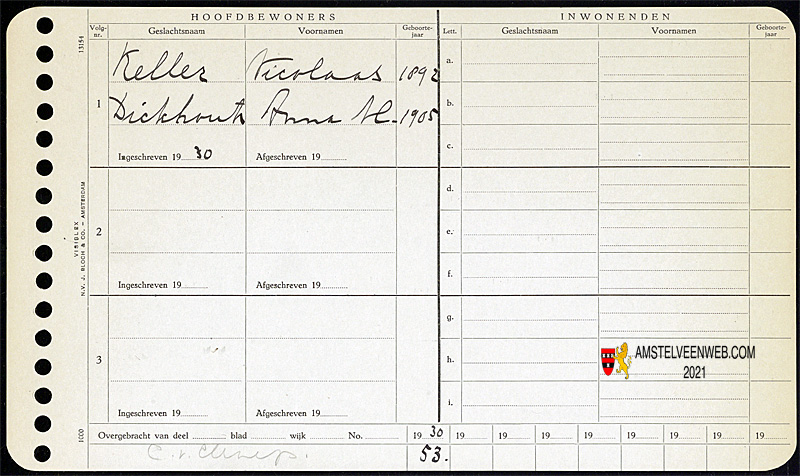 HOOFDBEWONERS
INWONENDEN
Volg-nr.
Geslachtsnaam
Voornamen
Geboorte-jaar
Lett.
Geslachtsnaam
Voornamen
Geboorte-jaar
13154
1
Keller Nicolaas 1892
Dickhout Anna M. 1905
Ingeschreven 19 30 Afgeschreven 19
2
Ingeschreven 19 Afgeschreven 19
3
Ingeschreven 19 Afgeschreven 19
a.
b.
c.
d.
e.
f.
g.
h.
i.
AMSTELVEENWEB.COM
2021
VISIBLEX
N.V. J. BLOCH & CO. - AMSTERDAM
Overgebracht van deel blad wijk No. 19 30 19 19 19 19 19 19 19 19
53.